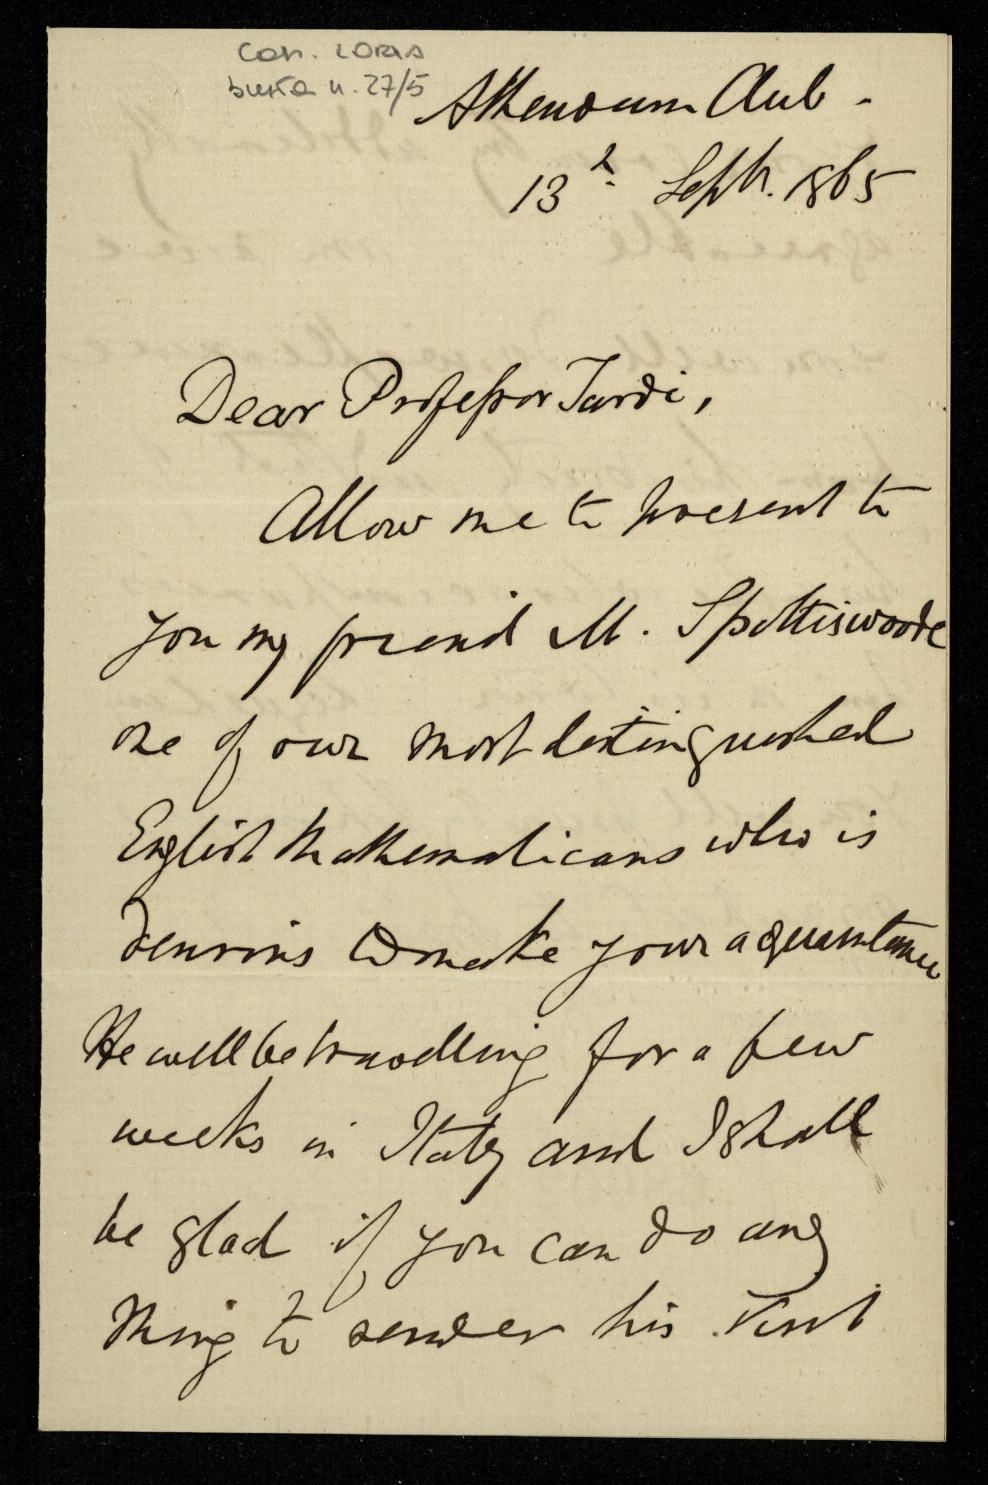 Con. LORIA
busta n. 27/5
Athenaeum Club -
13th. Septr. 1865
Dear Professor Tardi,
Allow me to present to
you my friend M. Spottiswoode
one of our most distinguished
English Mathematicans who is
desirous to make your aquaintance
He will be travelling for a few
weeks in Italy and I shall
be glad if you can do any
thing to render his visit